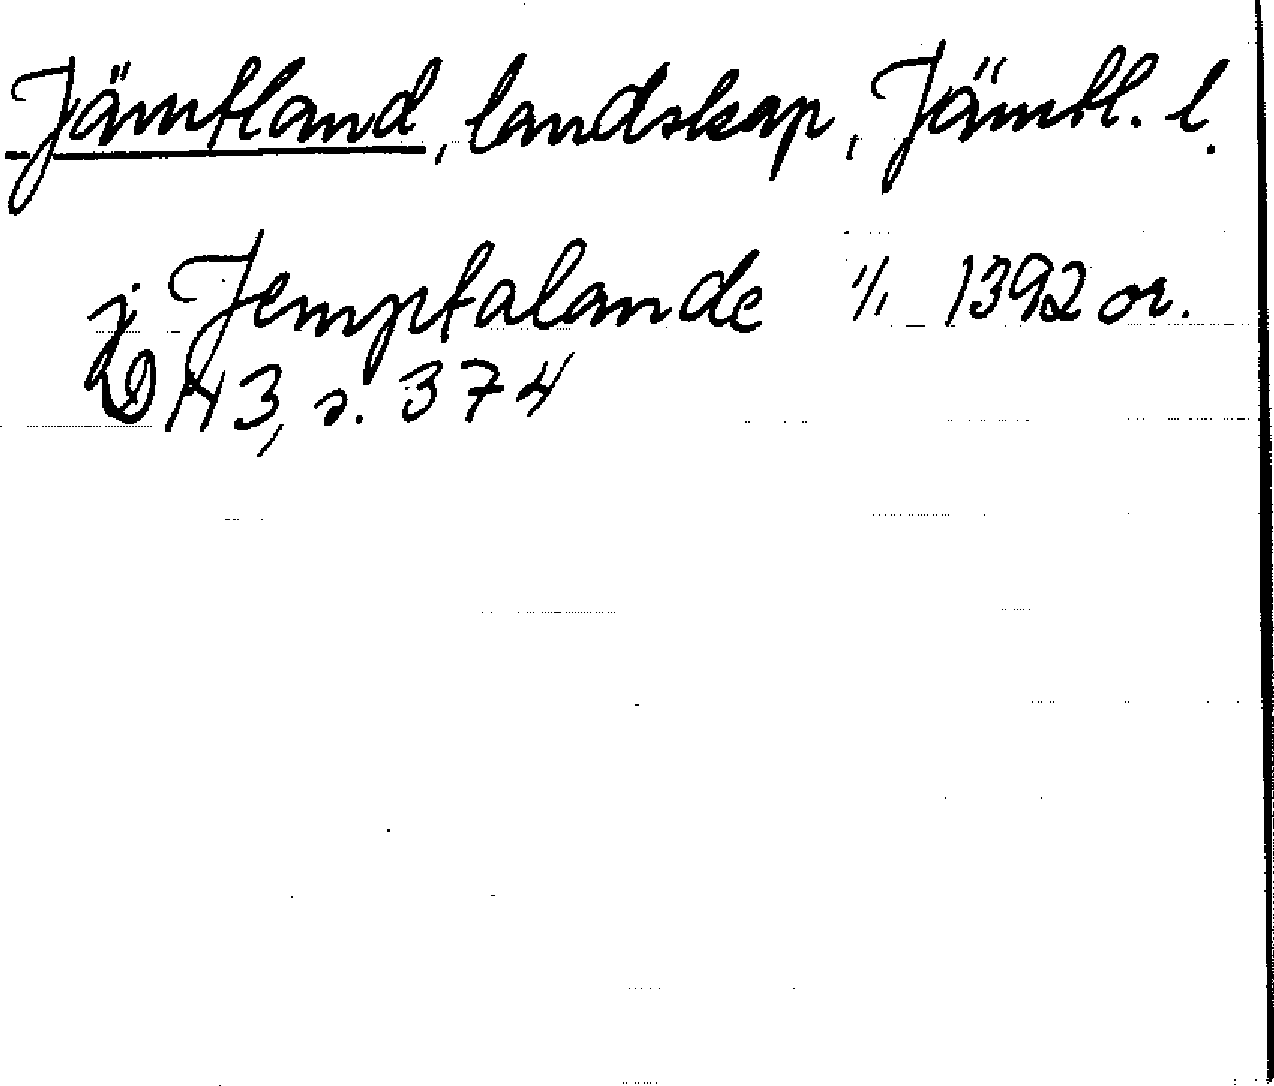 Jämtland, landskap, Jämtl. l.
j Jemptalande 1/1 1392 or.
DN 3, s. 374